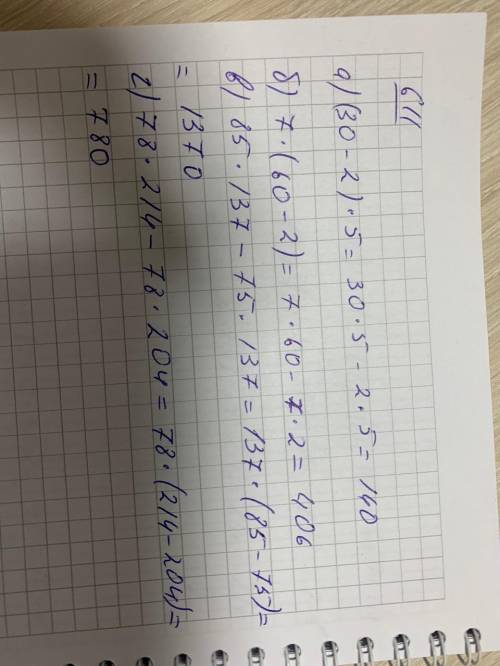 611
а) (30-2)·5=30·5-2·5=140
б) 7·(60-2)=7·60-7·2=406
в) 85·137-75·137=137·(85-75)=
=1370
г) 78·214-78·204=78·(214-204)=
=780